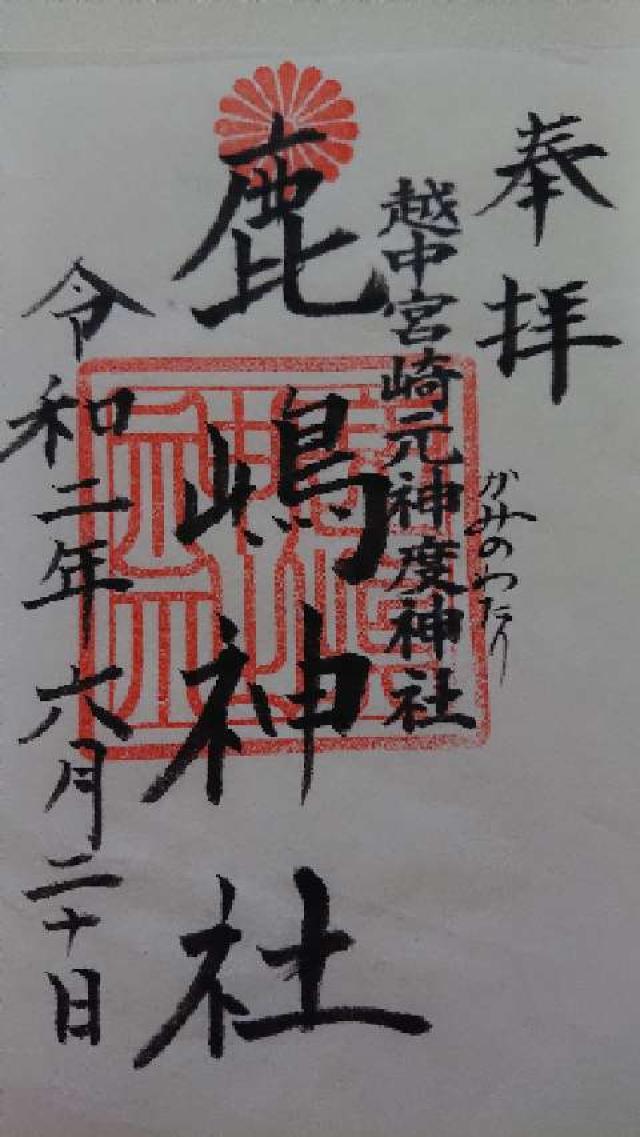 奉拝
越中宮崎元神度神社
かみのわたり
鹿嶋神社
令和二年六月二十日